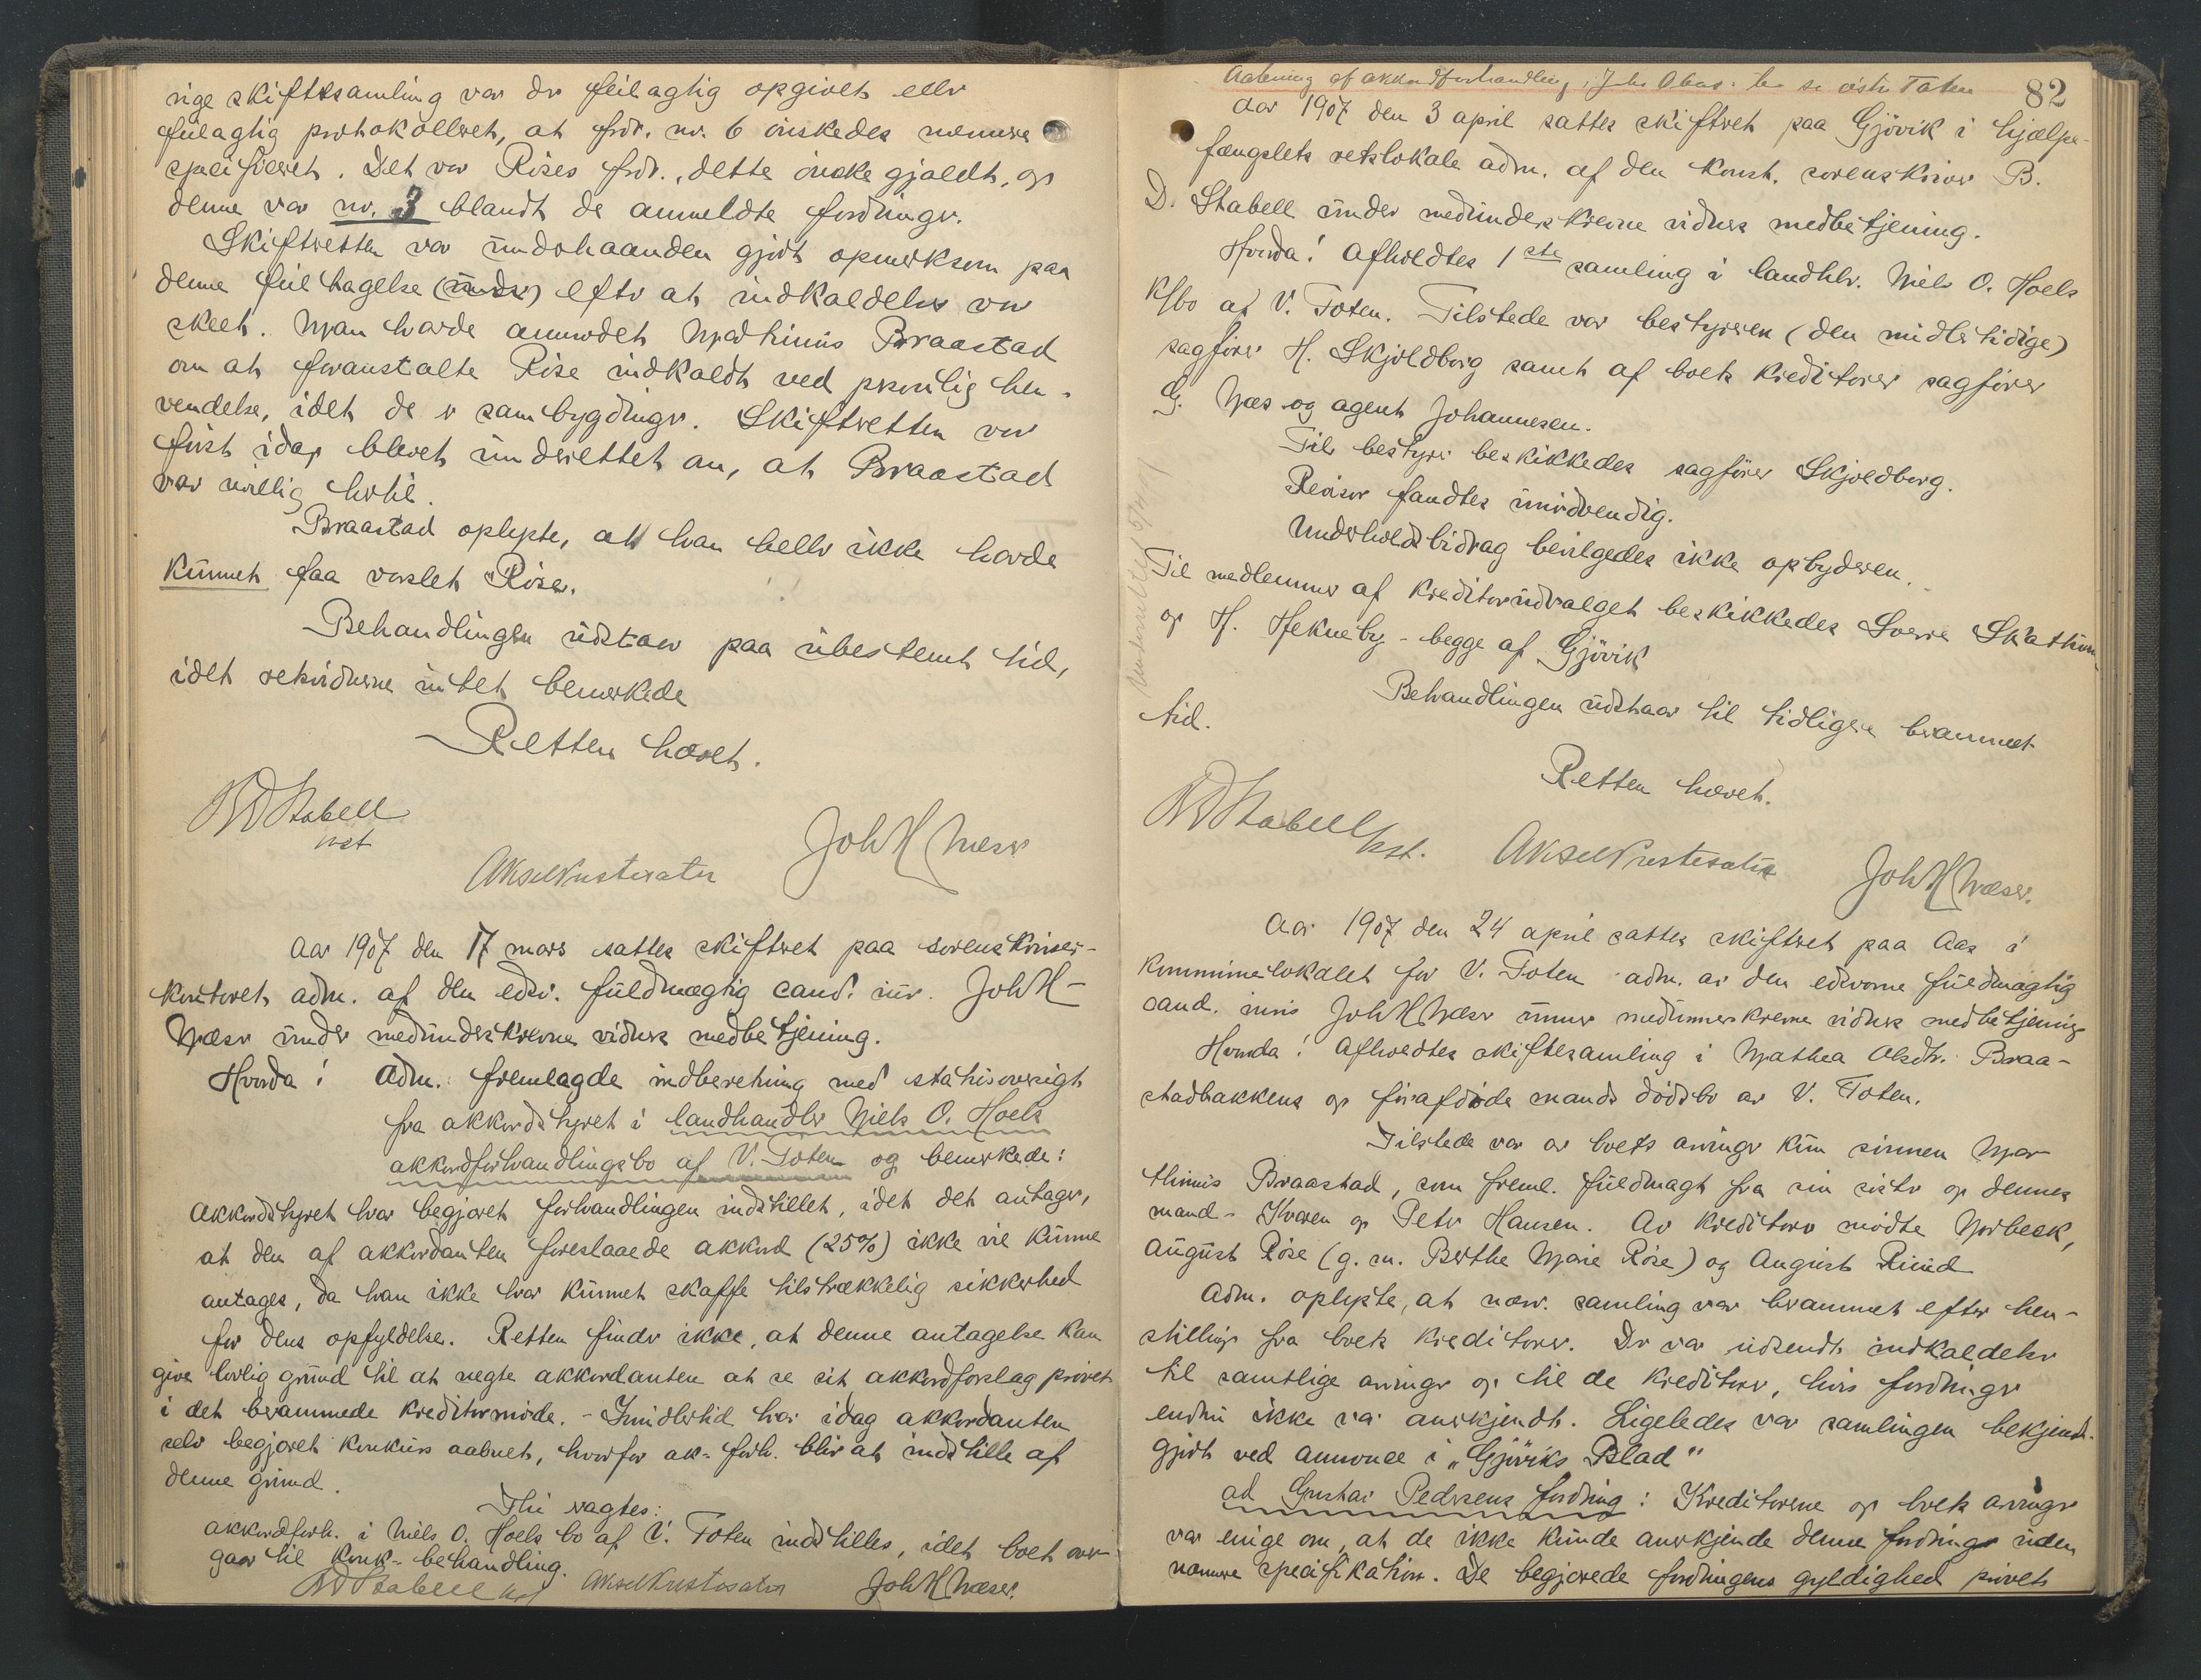 rige skiftesamling var der feilagtig opgivet eller
feilagtig protokolleret, at fordr. nr. 6 ønskedes nærmere
specificeret. Det var Rises fordr., dette ønske gjaldt, og
denne var nr. 3 blandt de anmeldte fordringer.
Skifteretten var underhaanden gjort opmerksom paa
denne feiltagelse efter at indkaldelse var
skeet. Man havde anmodet Mathinus Braastad
om at foranstalte Rise indkaldt ved personlig hen-
vendelse, idet de er sambygdinger. Skifteretten var
først idag blevet underrettet om, at Braastad
var uvillig hertil.
Braastad oplyste, at han heller ikke havde
kunnet faa varslet Rise.
Behandlingen udstaar paa ubestemt tid,
idet retsvidnerne intet bemerkede
Retten hævet.
B D Stabell
kst
Aksel Kristosatur
Joh H Næser
Aar 1907 den 17 mars sattes skifteret paa sorenskriver-
kontoret, adm. af den edsv. fuldmægtig cand. jur. Joh H
Næser under medunderskrevne vidners medbetjening.
Hvorda! Adm. fremlagde indberetning med statusoversigt
fra akkordstyret i landhandler Niels O. Hoels
akkordforhandlingsbo af V. Toten og bemerkede:
Akkordstyret har begjæret forhandlingen indstillet, idet det antager,
at den af akkordanten foreslaaede akkord (25%) ikke vil kunne
antages, da han ikke har kunnet skaffe tilstrækkelig sikkerhed
for dens opfyldelse. Retten finder ikke, at denne antagelse kan
give lovlig grund til at negte akkordanten at se sit akkordforslag prøvet
i det berammede kreditormøde. - Imidlertid har idag akkordanten
selv begjæret konkurs aabnet, hvorfor ak- forh. blir at indstille af
denne grund.
Thi vagtes:
akkordforh. i Niels O. Hoels bo af V. Toten indstilles, idet boet over-
gaar til konk- behandling.
B D Stabell kst Aksel Kristosatur Joh H Næser.
Aabning af akkordforhandling i Johs bo se østre Toten
82
Aar 1907 den 3 april sattes skifteret paa Gjøvik i hjælpe-
fængslets retslokale adm. af den konst. sorenskriver B.
D. Stabell under medunderskrevne vidners medbetjening.
Hvorda! Afholdtes 1ste samling i landhlr. Niels O. Hoels
K/bo af V. Toten. Tilstede var bestyreren (den midlertidige)
sagfører H. Skjoldborg samt af boets kreditorer sagfører
G. Næs og agent Johannesen.
Til bestyrer beskikkedes sagfører Skjoldborg.
Revisor fandtes unødvendig.
Underholdsbidrag bevilgedes ikke opbyderen.
Til medlemmer af kreditorudvalget beskikkedes Sverre
og H. Hekneby - begge af Gjøvik
Behandlingen udstaar til tidligere berammet
tid.
Retten hævet.
B D Stabell kst. Aksel Kristosatur Joh H Næser.
Aar 1907 den 24 april sattes skifteret paa Aas i
kommunelokalet for V. Toten adm. av den edsvorne fuldmægtig
cand. juris Joh H Næser under medunnerskrevne vidners medbetjening
Hvorda! Afholdtes skiftesamling i Mathea Olsdtr. Braa-
stadbakkens og forafdøde mands dødsbo av V. Toten.
Tilstede var av boets arvinger kun sønnen Mar-
thinus Braastad, som freml. fuldmagt fra sin søster og dennes
mand - Karen og Peter Hansen. Av kreditorer mødte Norbeck,
August Rise (g. m. Berthe Marie Rise) og August Ruud
Adm. oplyste, at nærv. samling var berammet efter hen-
stilling fra boets kreditorer. Der var udsendt indkaldelser
til samtlige arvinger og til de kreditorer, hvis fordringer
endnu ikke var anerkjendt. Ligeledes var samlingen bekjendt-
gjort ved annonce i „Gjøviks Blad"
ad Gustav Pedersens fordring: Kreditorerne og boets arvinger
var enige om, at de ikke kunde anerkjende denne fordring uden
nærmere specifikation. De begjærede fordringens gyldighed prøvet